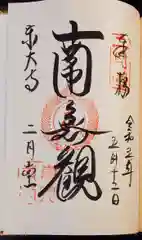 奉拝
令和五年
五月十二日
南無観
二月堂
東大寺